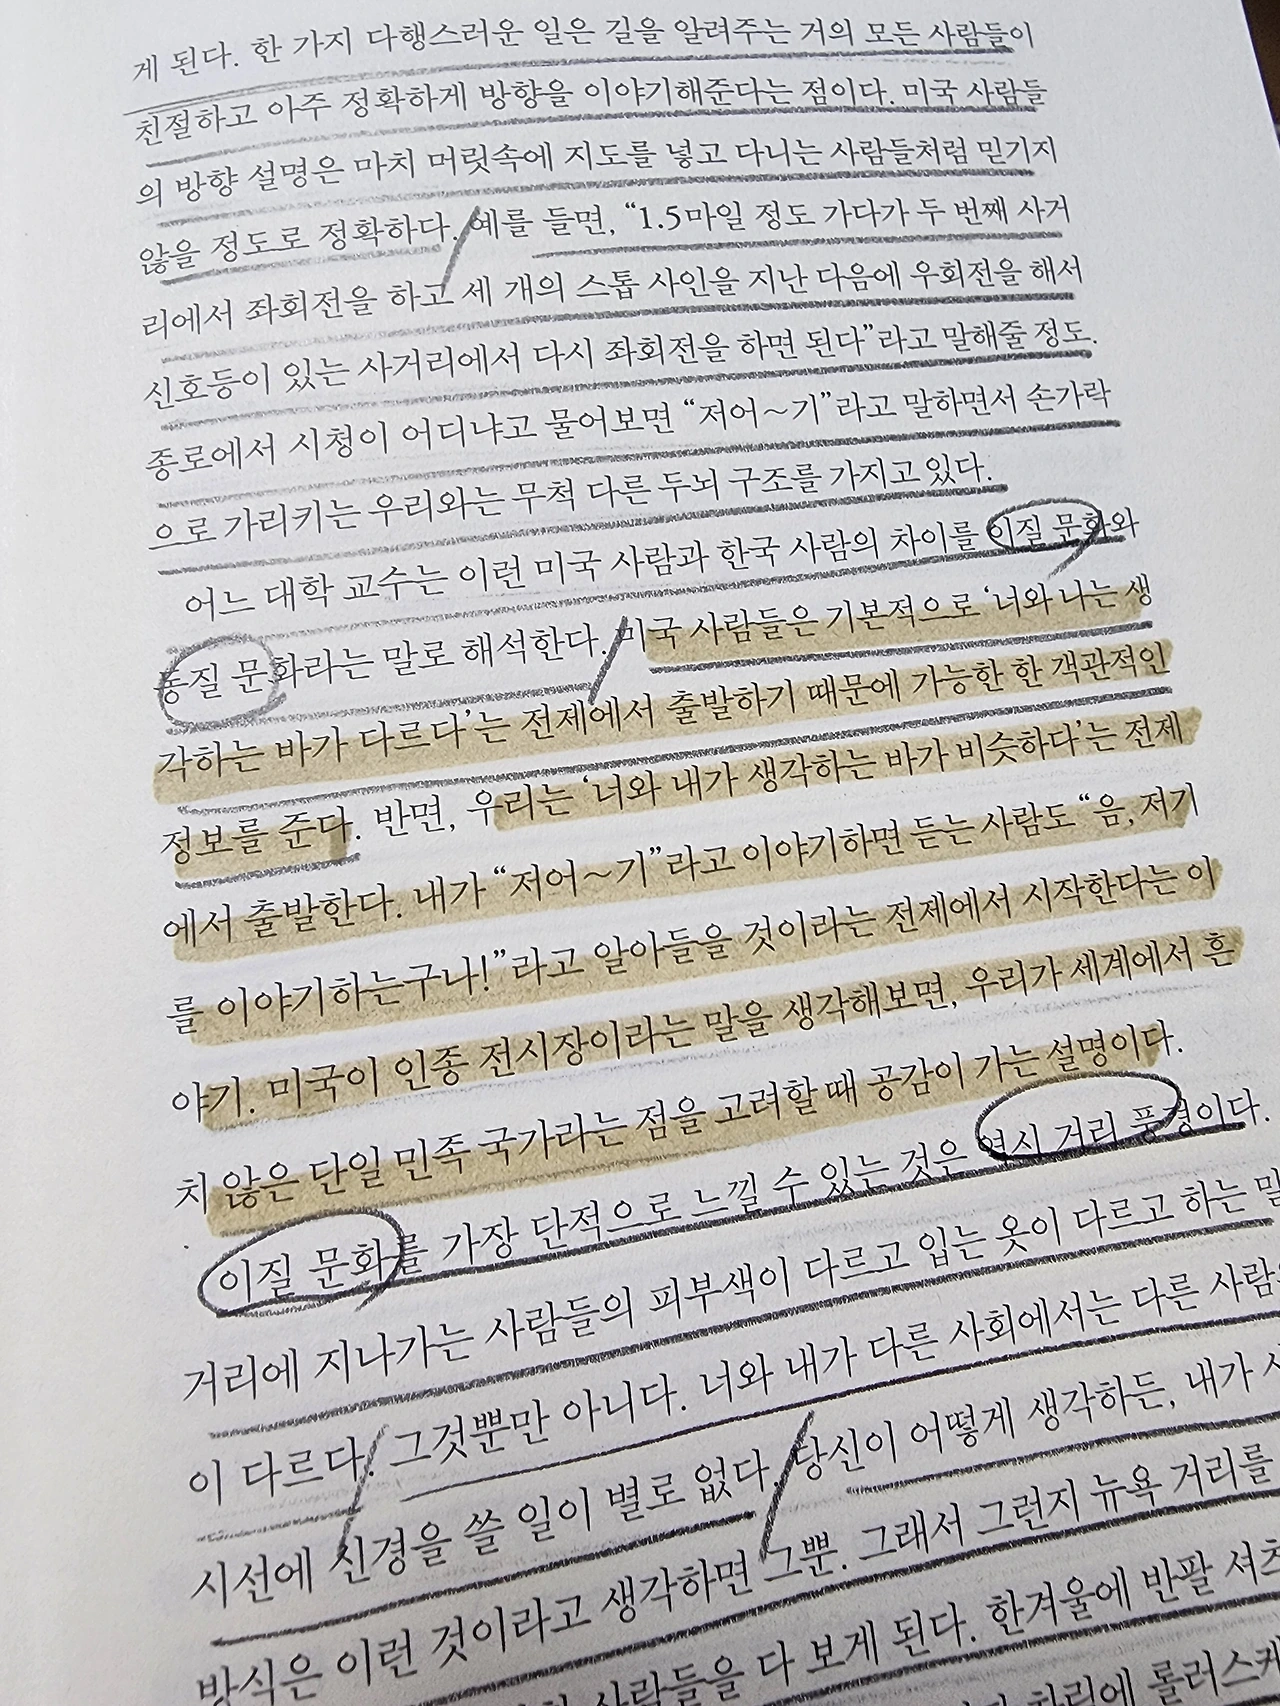 게 된다. 한 가지 다행스러운 일은 길을 알려주는 거의 모든 사람들이
친절하고 아주 정확하게 방향을 이야기해준다는 점이다. 미국 사람들
의 방향 설명은 마치 머릿속에 지도를 넣고 다니는 사람들처럼 믿기지
않을 정도로 정확하다. 예를 들면, “1.5마일 정도 가다가 두 번째 사거
리에서 좌회전을 하고 세 개의 스톱 사인을 지난 다음에 우회전을 해서
신호등이 있는 사거리에서 다시 좌회전을 하면 된다”라고 말해줄 정도.
종로에서 시청이 어디냐고 물어보면 “저어~기”라고 말하면서 손가락
으로 가리키는 우리와는 무척 다른 두뇌 구조를 가지고 있다.
어느 대학 교수는 이런 미국 사람과 한국 사람의 차이를 이질 문화와
동질 문화라는 말로 해석한다. 미국 사람들은 기본적으로 ‘너와 나는 생
각하는 바가 다르다’는 전제에서 출발하기 때문에 가능한 한 객관적인
정보를 준다. 반면, 우리는 ‘너와 내가 생각하는 바가 비슷하다’는 전제
에서 출발한다. 내가 “저어~기”라고 이야기하면 듣는 사람도 “음, 저기
를 이야기하는구나!”라고 알아들을 것이라는 전제에서 시작한다는 이
야기. 미국이 인종 전시장이라는 말을 생각해보면, 우리가 세계에서 흔
치 않은 단일 민족 국가라는 점을 고려할 때 공감이 가는 설명이다.
이질 문화를 가장 단적으로 느낄 수 있는 것은 역시 거리 풍경이다.
거리에 지나가는 사람들의 피부색이 다르고 입는 옷이 다르고 하는 말
이 다르다. 그것뿐만 아니다. 너와 내가 다른 사회에서는 다른 사람
시선에 신경을 쓸 일이 별로 없다. 당신이 어떻게 생각하든, 내가
방식은 이런 것이라고 생각하면 그뿐. 그래서 그런지 뉴욕 거리를
사람들을 다 보게 된다. 한겨울에 반팔 셔츠